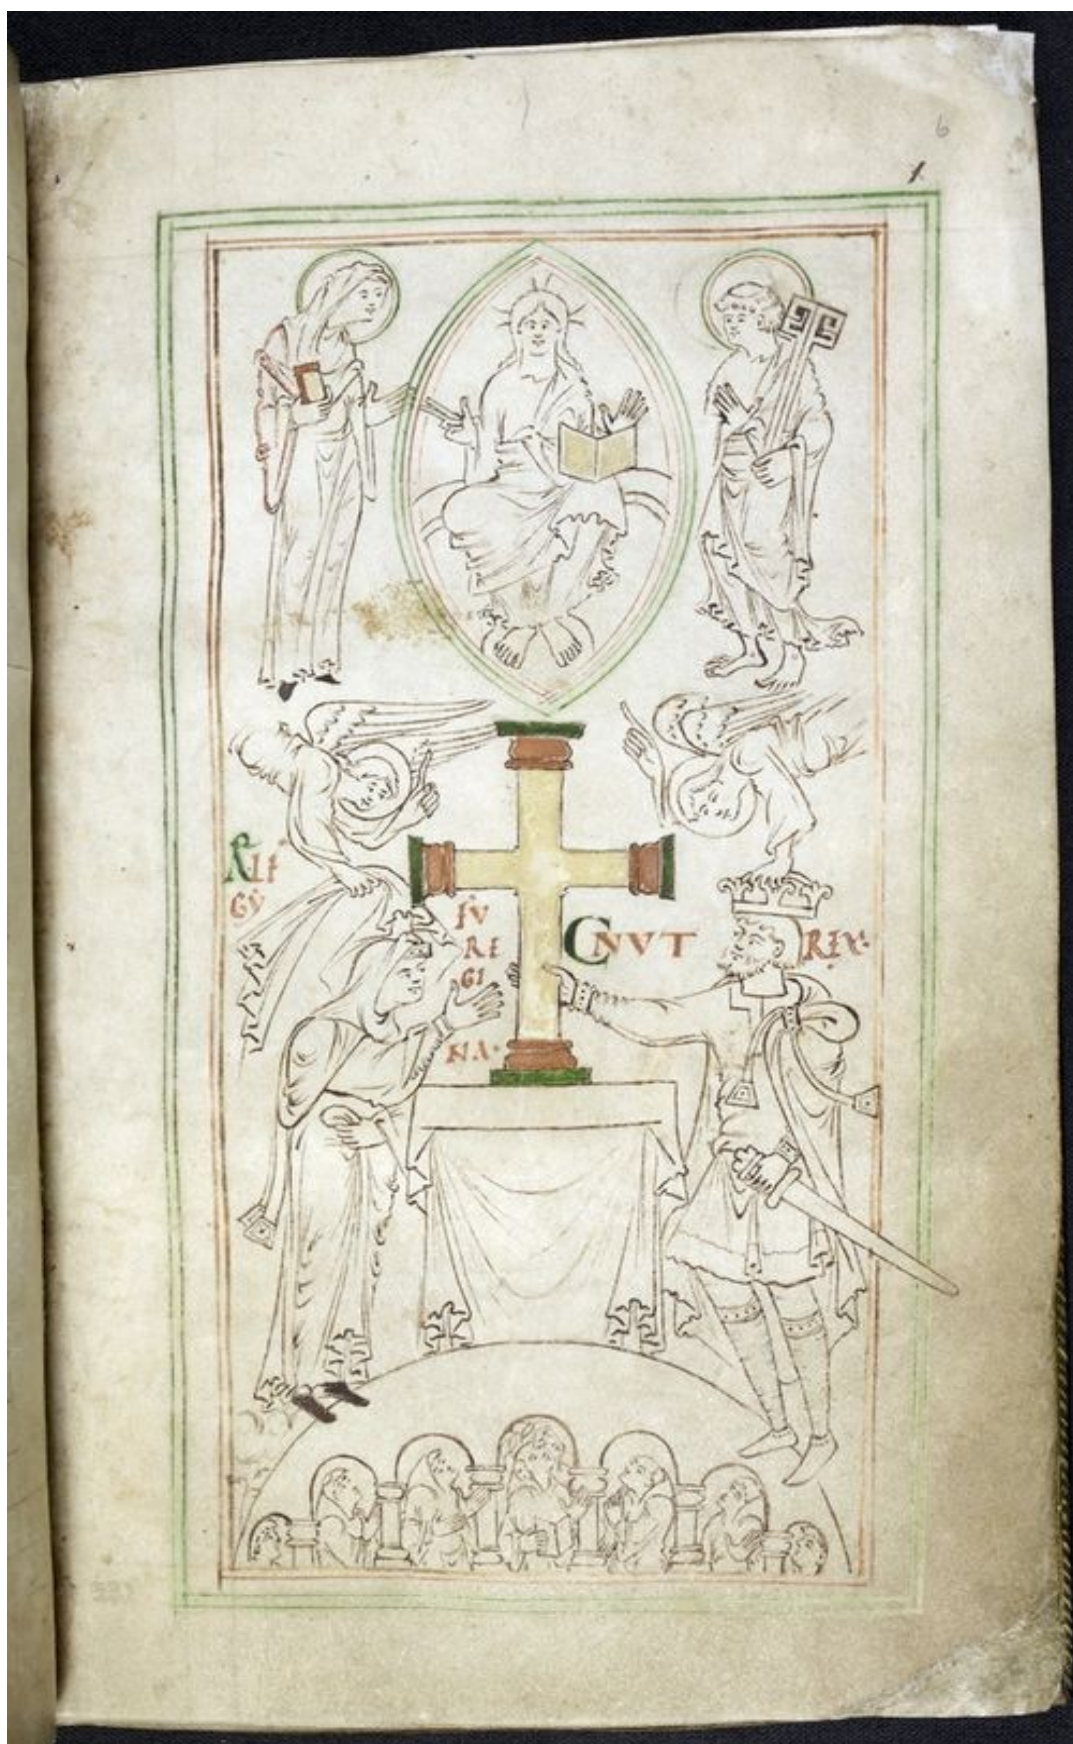 6
1.
ÆLF
GẎ
FV
RE
GI
NA·
CNVT REX·